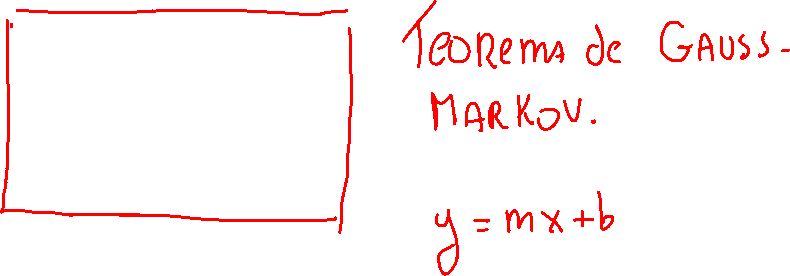 Teorema de Gauss-
Markov.
y = mx + b